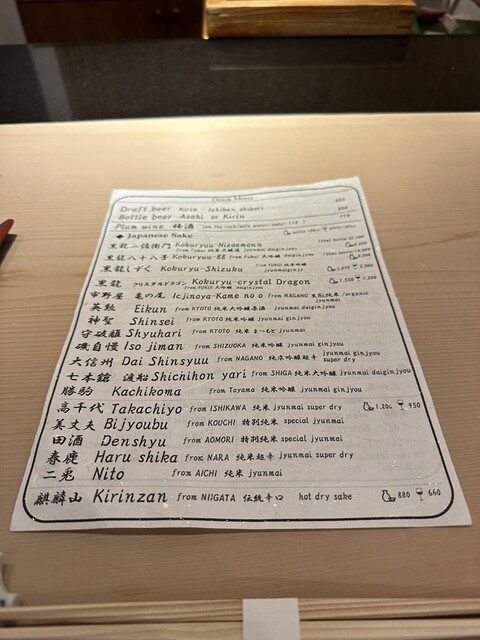 Drink Menu
Draft beer Kirin - Ichiban shibori
Bottle beer Asahi or Kirin
Plum wine 梅酒
◆ Japanese Sake
黒龍二左衛門 Kokuryuu Nizaemonn
黒龍八十八号 Kokuryuu-88
黒龍しずく Kokuryu-Shizuku
黒龍 クリスタルドラゴン Kokuryu-crystal Dragon 1,550 1,200
市野屋 亀の尾 Icjinoya-Kame no o from NAGANO
英勲 Eikun from KYOTO 純米大吟醸原酒 jyunmai daiginjyou
神聖 Shinsei from KYOTO 純米吟醸 jyunmai ginjyou
守破離 Shyuhari from KYOTO 純米 jyunmai
磯自慢 Iso jiman from SHIZUOKA 純米吟醸 jyunmai ginjyou
大信州 Dai Shinsyuu from NAGANO 純米吟醸辛口 jyunmai ginjyou super dry
七本鎗 渡船 Shichihon yari from SHIGA 純米大吟醸 jyunmai daiginjyou
勝駒 Kachikoma from Toyama 純米吟醸 jyunmai ginjyou
高千代 Takachiyo from ISHIKAWA 純米 jyunmai super dry 950
美丈夫 Bijyoubu from KOUCHI 特別純米 special jyunmai
田酒 Denshyu from AOMORI 特別純米 special jyunmai
春鹿 Haru shika from NARA 純米超辛 jyunmai super dry
二兎 Nito from AICHI 純米 jyunmai
麒麟山 Kirinzan from NIIGATA 伝統辛口 hot dry sake 880 660